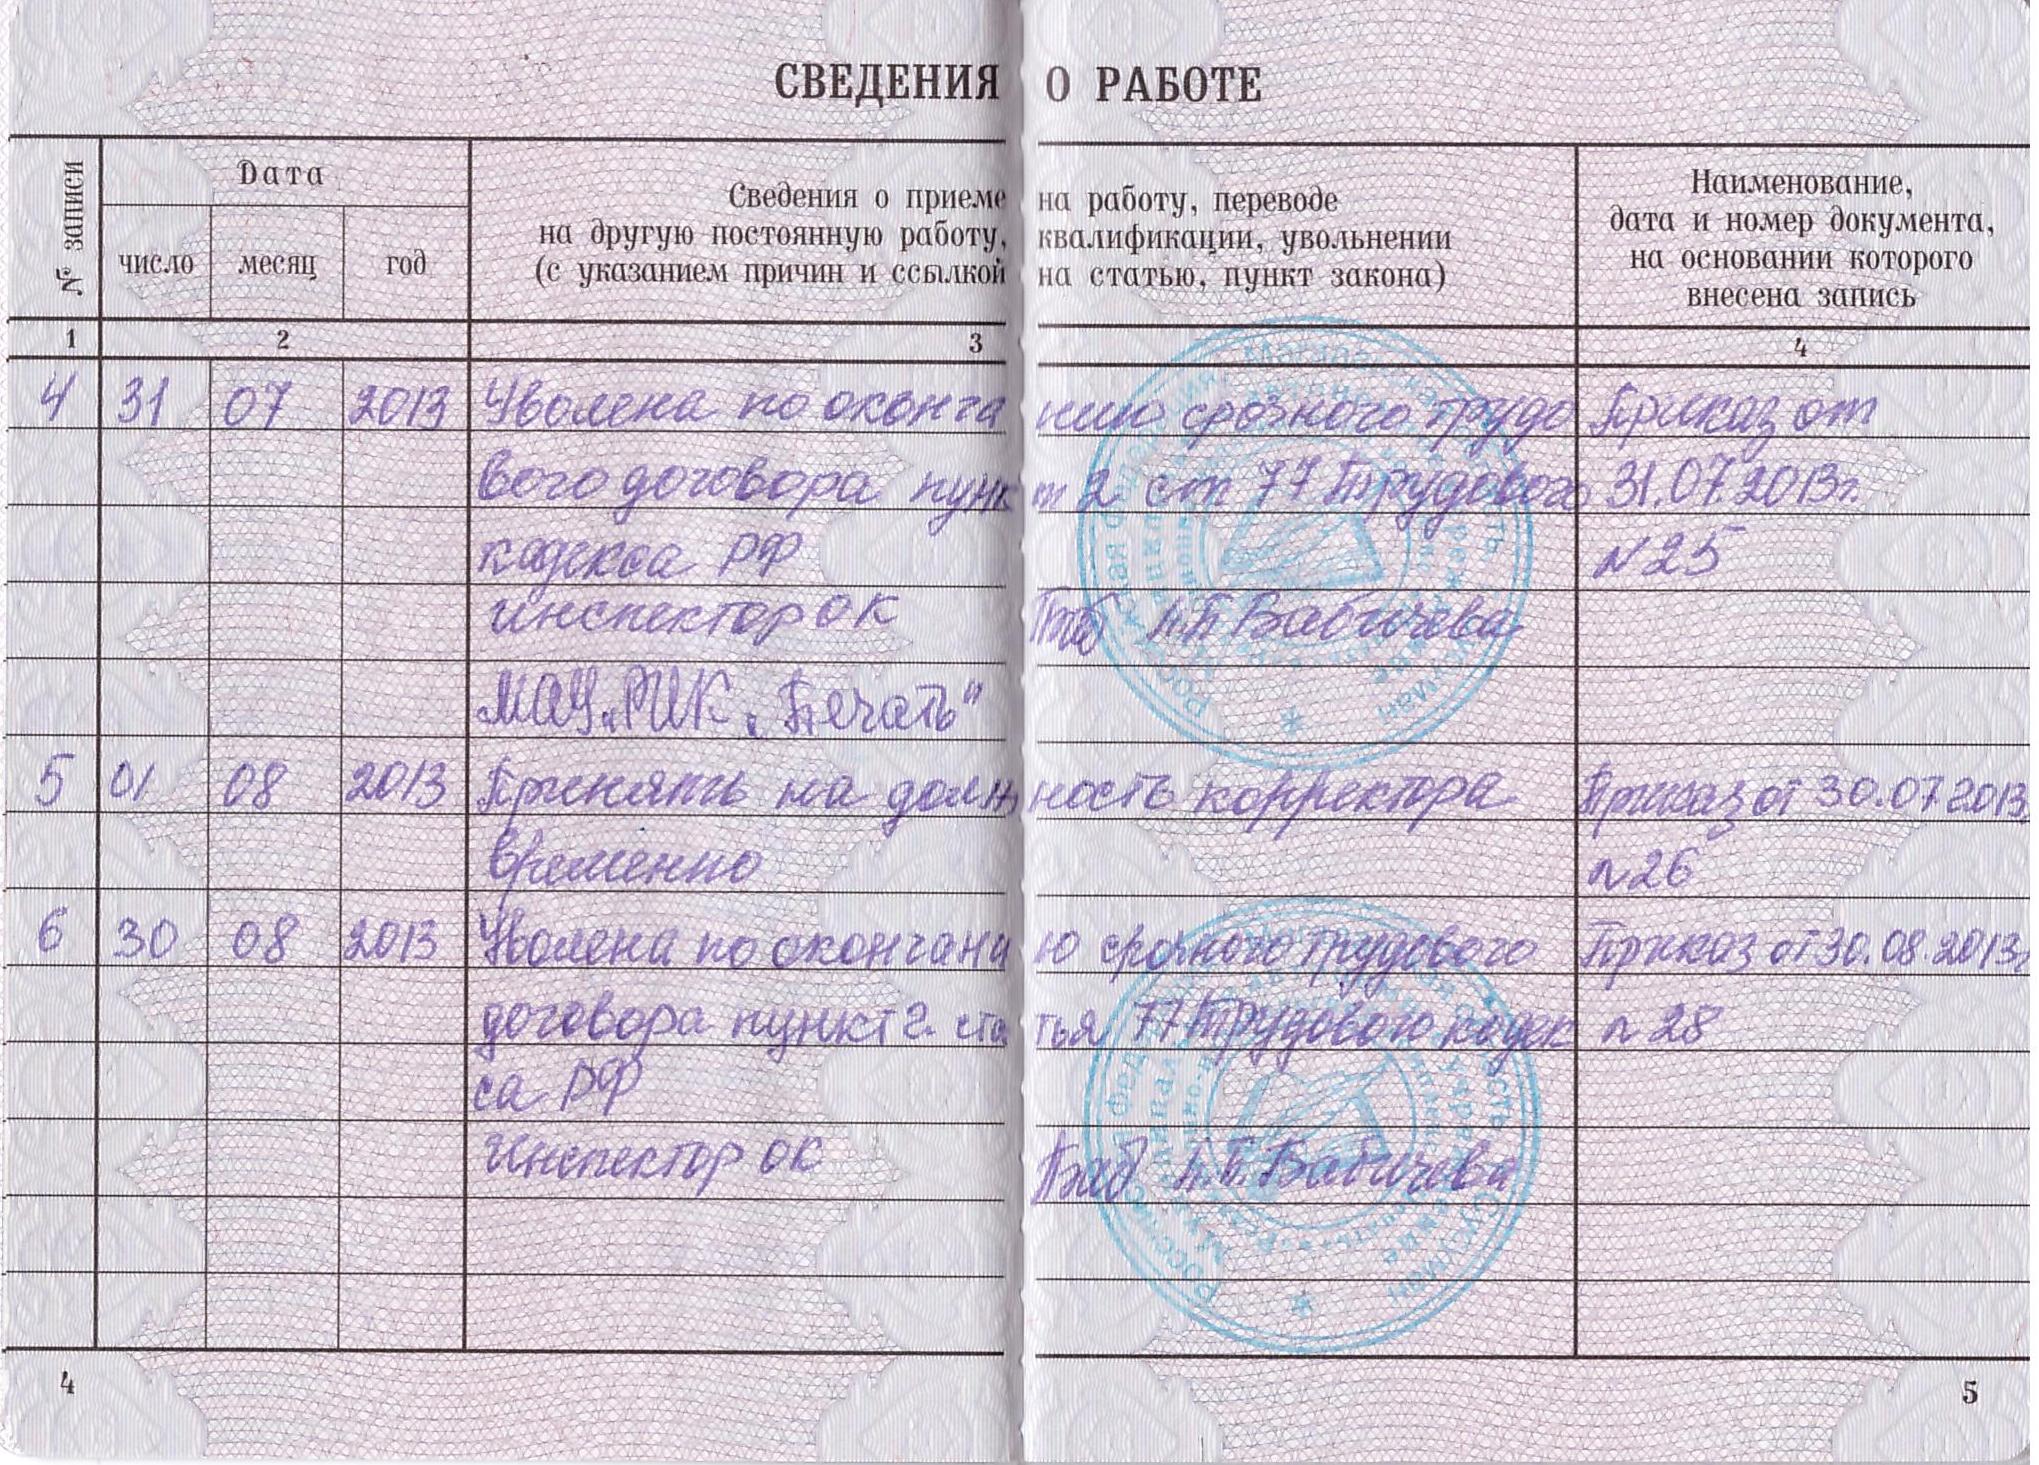 СВЕДЕНИЯ О РАБОТЕ
№ записи
Дата
число месяц год
Сведения о приеме на работу, переводе
на другую постоянную работу, квалификации, увольнении
(с указанием причин и ссылкой на статью, пункт закона)
Наименование,
дата и номер документа,
на основании которого
внесена запись
1 2 3 4
4 31 07 2013 Уволена по оконча нию срочного трудо Приказ от
вого договора пунк т 2 ст 77 Трудового 31.07.2013г.
кодекса РФ N25
инспектор ОК Баб Н.П. Бабичева
МАУ „РИК „Печать"
5 01 08 2013 Принять на долж ность корректора Приказ от 30.07.2013
временно N26
6 30 08 2013 Уволена по окончани ю срочного трудового Приказ от 30.08.2013г
договора пункт 2. ста тья 77 Трудового кодек N 28
са РФ
Инспектор ОК Баб Н.П. Бабичева
4
5